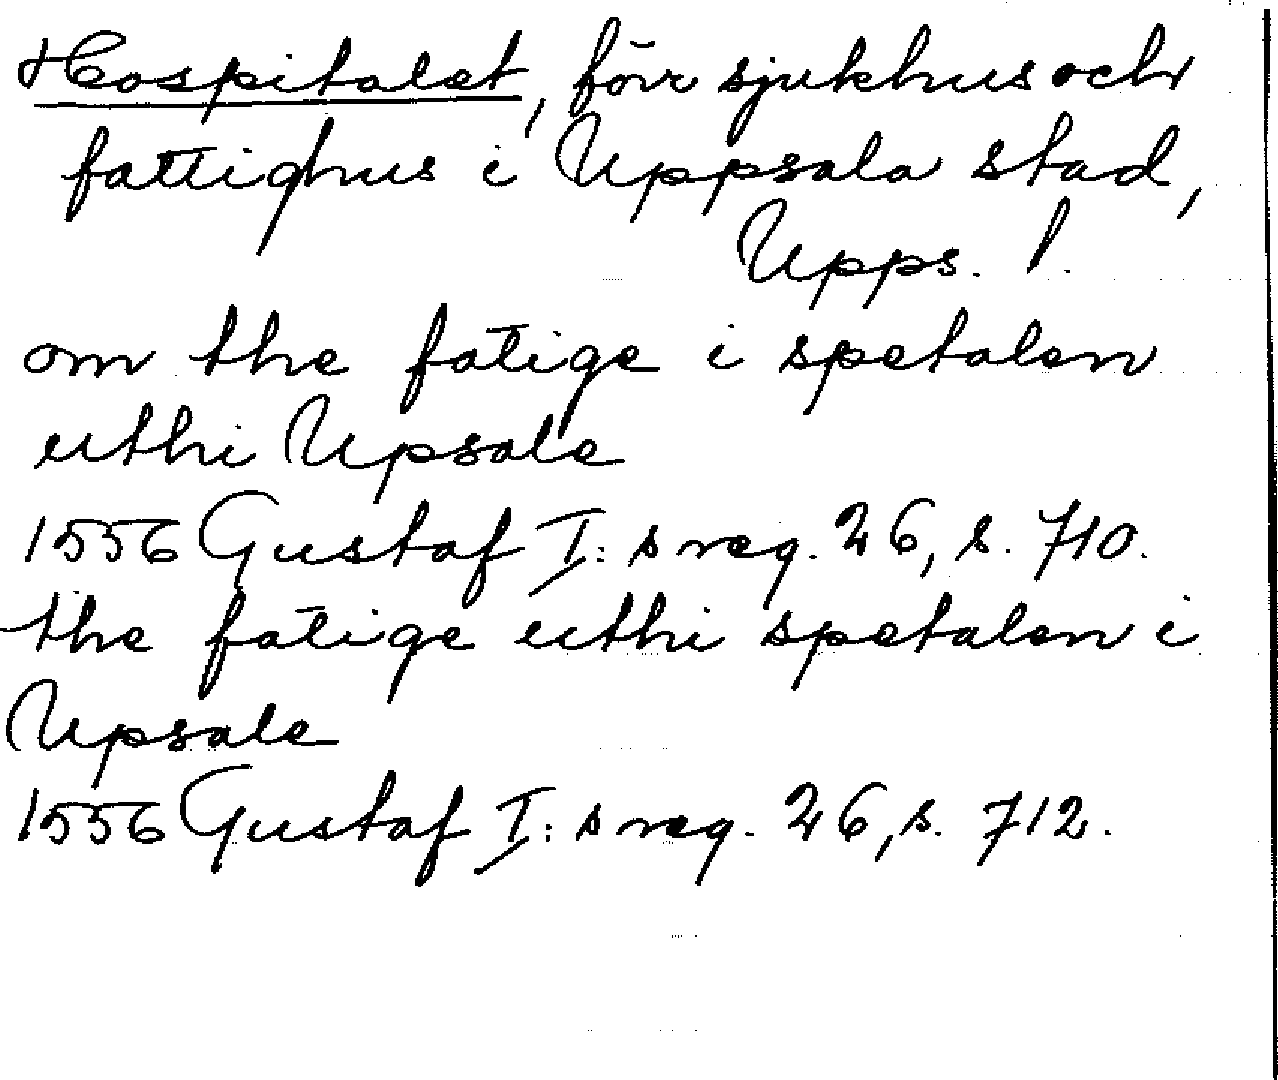 Hospitalet, förr sjukhus och
fattighus i Uppsala stad,
Upps. l.
om the fatige i spetalen
uthi Upsale
1556 Gustaf I: s reg. 26, s. 710.
the fatige uthi spetalen i
Upsale
1556 Gustaf I: s reg. 26, s. 712.